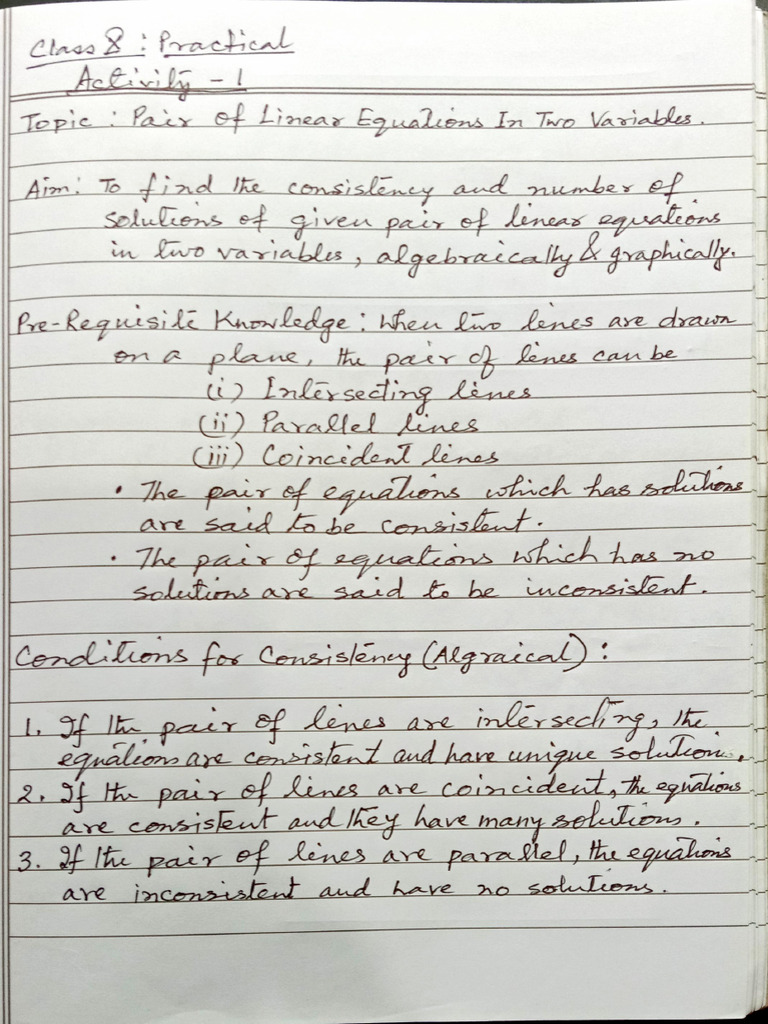 Class 8 : Practical
Activity - 1
Topic : Pair of Linear Equations In Two Variables.
Aim : To find the consistency and number of
solutions of given pair of linear equations
in two variables, algebraically & graphically.
Pre-Requisite Knowledge : When two lines are drawn
on a plane, the pair of lines can be
(i) Intersecting lines
(ii) Parallel lines
(iii) Coincident lines
• The pair of equations which has solutions
are said to be consistent.
• The pair of equations which has no
solutions are said to be inconsistent.
Conditions for Consistency (Algraical) :
1. If the pair of lines are intersecting, the
equations are consistent and have unique solution.
2. If the pair of lines are coincident, the equations
are consistent and they have many solutions.
3. If the pair of lines are parallel, the equations
are inconsistent and have no solutions.